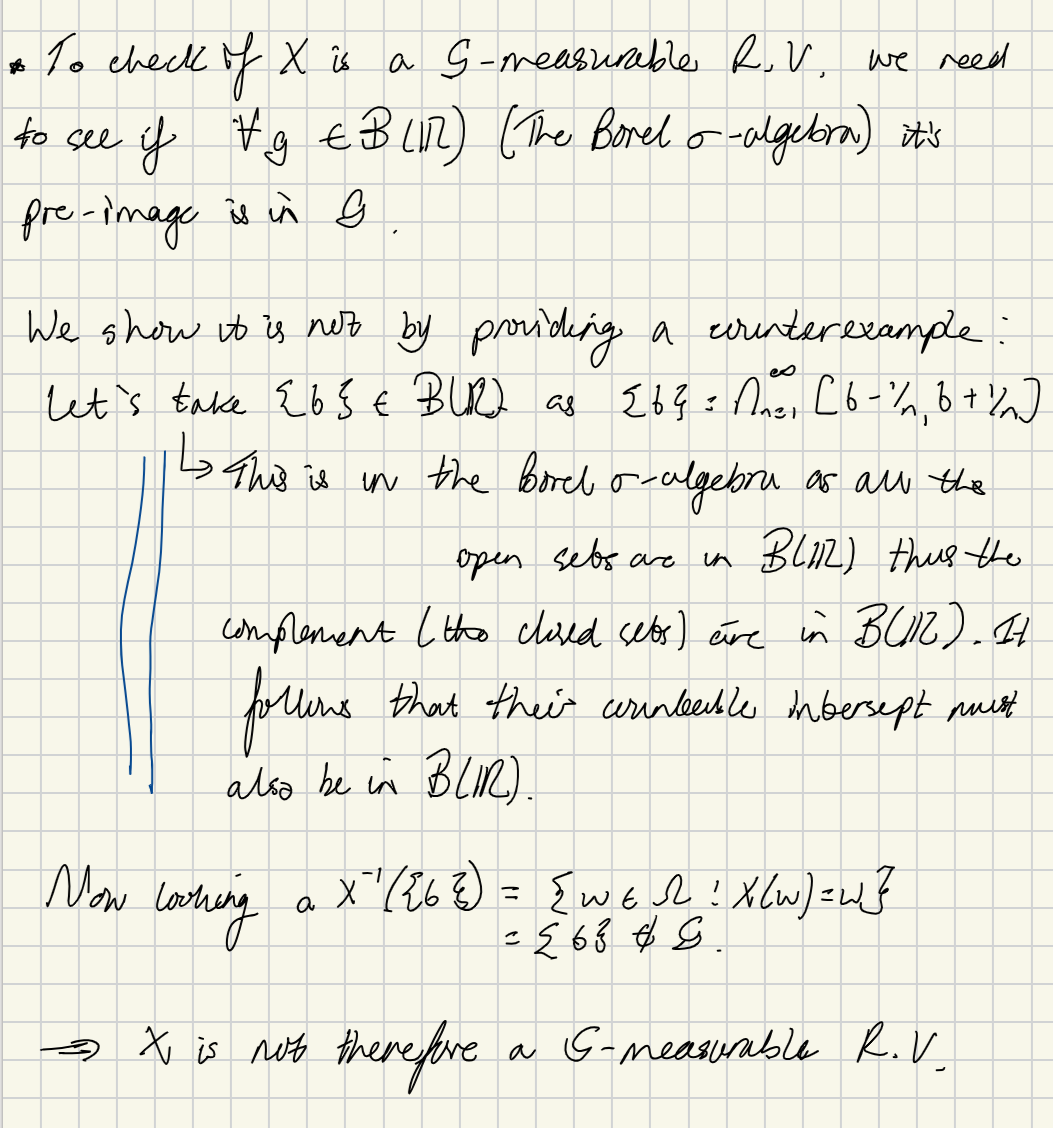 • To check if X is a G-measurable R.V. we need
to see if ∀g ∈ B(ℝ) (The Borel σ-algebra) it's
pre-image is in G.
We show it is not by providing a counterexample:
Let's take {6} ∈ B(ℝ) as {6} = ∩ₙ₌₁^∞ [6-1/n, 6+1/n]
↳ This is in the Borel σ-algebra as all the
open sets are in B(ℝ) thus the
complement (the closed sets) are in B(ℝ). It
follows that their countable intersept must
also be in B(ℝ).
Now looking a X⁻¹({6}) = {w ∈ Ω : X(w)=w}
= {6} ∉ G.
⟹ X is not therefore a G-measurable R.V.